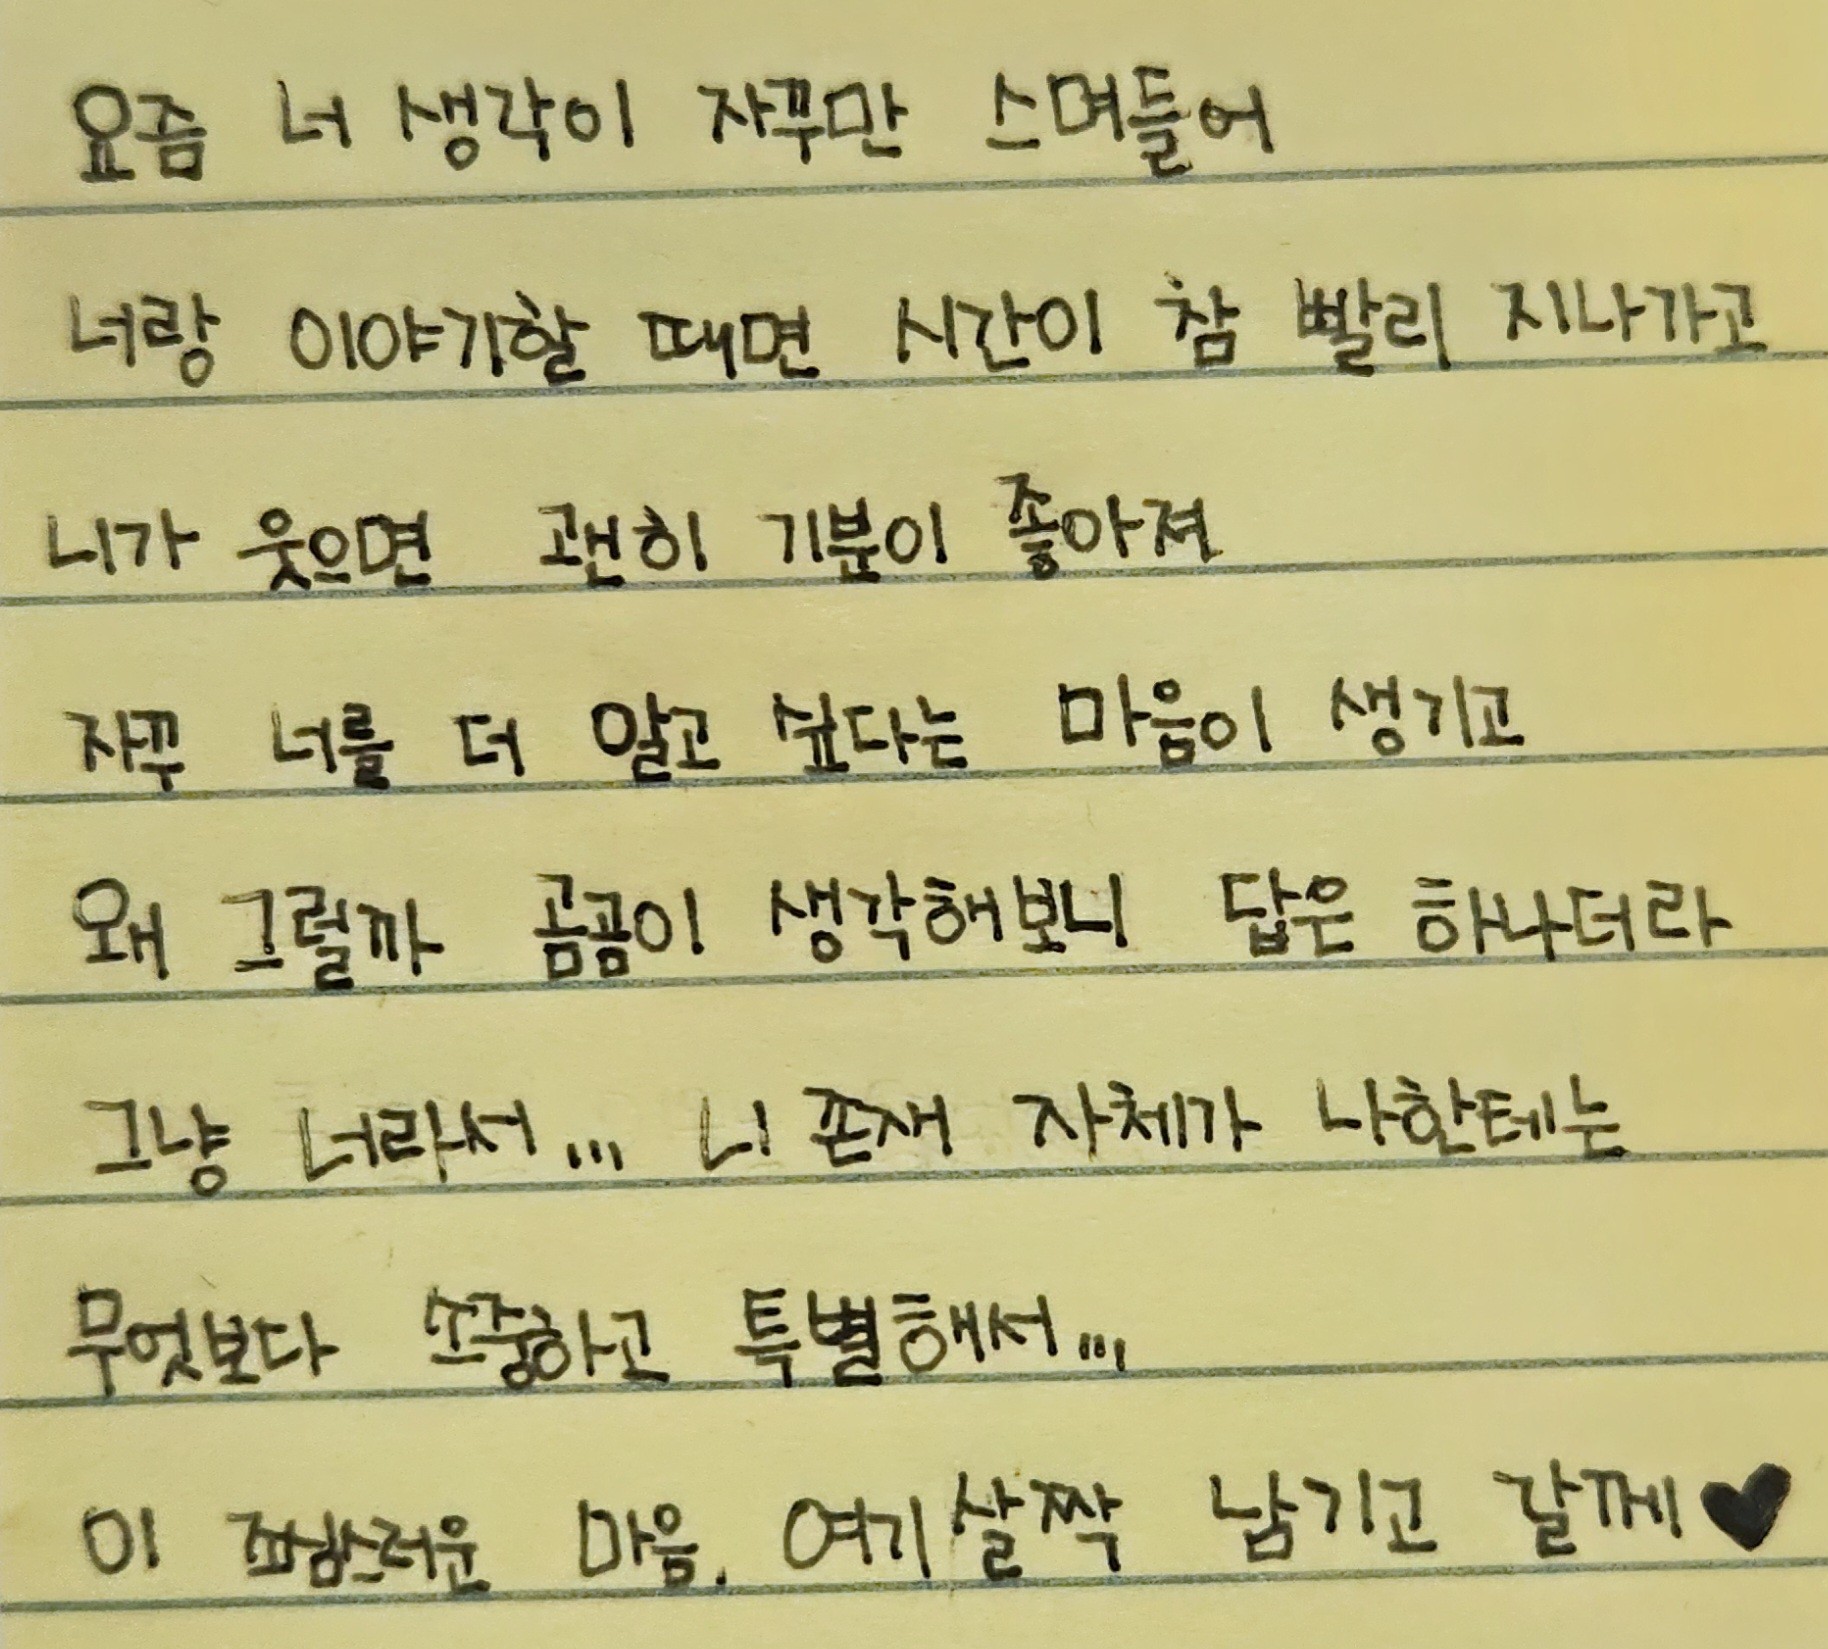 요즘 너 생각이 자꾸만 스며들어
너랑 이야기할 때면 시간이 참 빨리 지나가고
니가 웃으면 괜히 기분이 좋아져
자꾸 너를 더 알고 싶다는 마음이 생기고
왜 그럴까 곰곰이 생각해보니 답은 하나더라
그냥 너라서... 니 존재 자체가 나한테는
무엇보다 소중하고 특별해서...
이 조심스러운 마음. 여기 살짝 남기고 갈께♥